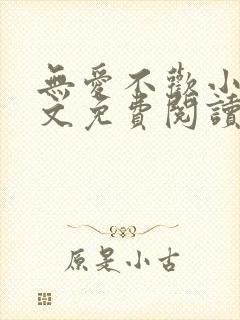 無愛不歡小
文免費閱讀
原是小古